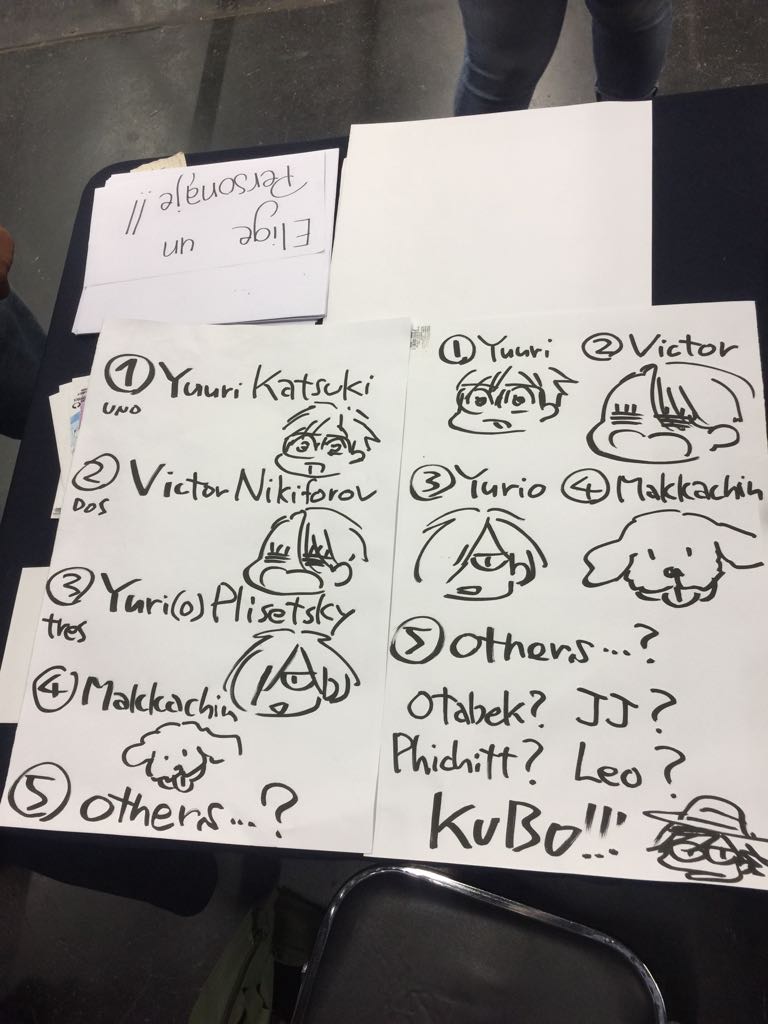 Elige un
Personaje!!
① Yuuri Katsuki
UNO
② Victor Nikiforov
DOS
③ Yuri(o) Plisetsky
tres
④ Makkachin
⑤ others...?
① Yuuri ② Victor
③ Yurio ④ Makkachin
⑤ others...?
Otabek? JJ?
Phichitt? Leo?
KuBo!!!